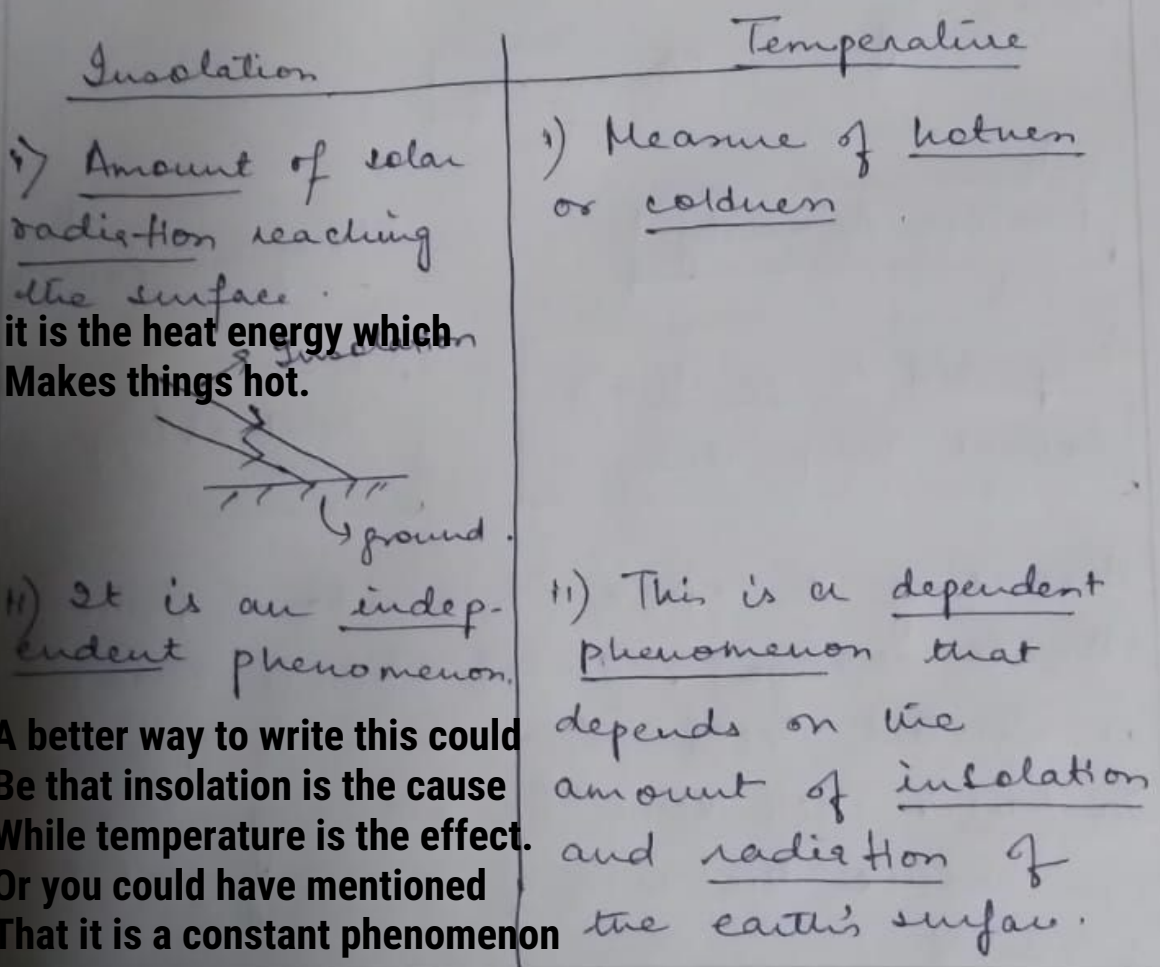 Insolation
i) Amount of solar
radiation reaching
the surface.
it is the heat energy which
Makes things hot.
Insolation
ground.
ii) It is an indep-
endent phenomenon.
A better way to write this could
Be that insolation is the cause
While temperature is the effect.
Or you could have mentioned
That it is a constant phenomenon
Temperature
i) Measure of hotness
or coldness
ii) This is a dependent
phenomenon that
depends on the
amount of insolation
and radiation of
the earth's surface.